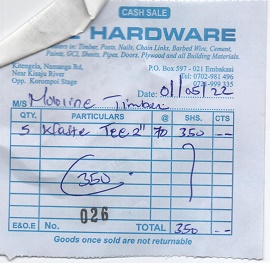 CASH SALE
HARDWARE
Dealers in: Timber, Posts, Nails, Chain Links, Barbed Wire, Cement,
Paints, GCI, Sheets, Pipes, Doors, Plywood and all Building Materials.
Kitengela, Namanga Rd,
Near Kisaju River
Opp. Korompoi Stage
P.O. Box 597 - 021 Embakasi
Tel: 0702-981 496
0735-999 235
Date: 01/08/22
M/S Moloine Timber
QTY. PARTICULARS @ SHS. CTS
5 Tee 2" 70 350 --
350
026
E&O.E No. TOTAL 350 --
Goods once sold are not returnable